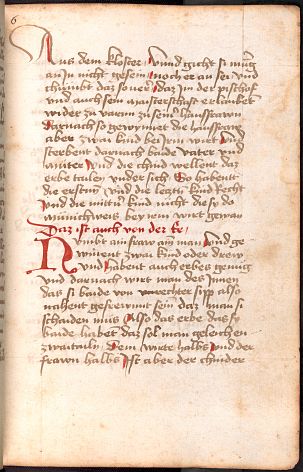 6
Aus dem kloster Vnnd gicht si mug
an In nicht gesein noch er an sei vnd
chumbt daz so uerr daz Im der pischof
vnd auch sein maisterschaft erlaubet
wider zu varen zu seiner hausfrawn
Darnach so gewynnet die hausfraw
aber zwai kind bei Irm wirt Vnd
sterbent darnach baide vater vnd
muter Vnd die chind wellent daz
erbe tailen vnder sich So habent
die ersten Vnd die leczten kind Recht
Vnd die mittern kind nicht die sy do
munichweis bey irem wirt gewan
Daz ist auch von der Ee
Nimbt ain fraw ain man Vnd ge
winnent zwai kind oder drew
Vnd habent auch erbes genug
vnd darnach wirt man des Innen
das si baide von rechter sipp also
nahent gefrewnt sein daz man si
schaiden mus Also das erbe das sy
baide habent daz sol man geleichen
zwaitailen Dem wirte halbs vnd der
frawn halbs Ist aber der chinder